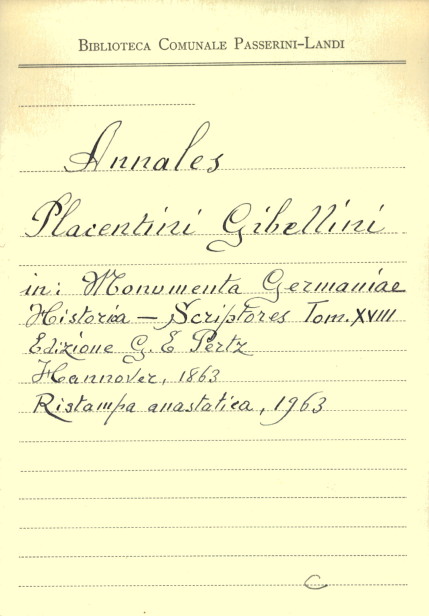 BIBLIOTECA COMUNALE PASSERINI-LANDI
Annales
Placentini Gibellini
in: Monumenta Germaniae
Historica — Scriptores Tom. XVIII
Edizione G. E Pertz
Hannover, 1863
Ristampa anastatica, 1963
C